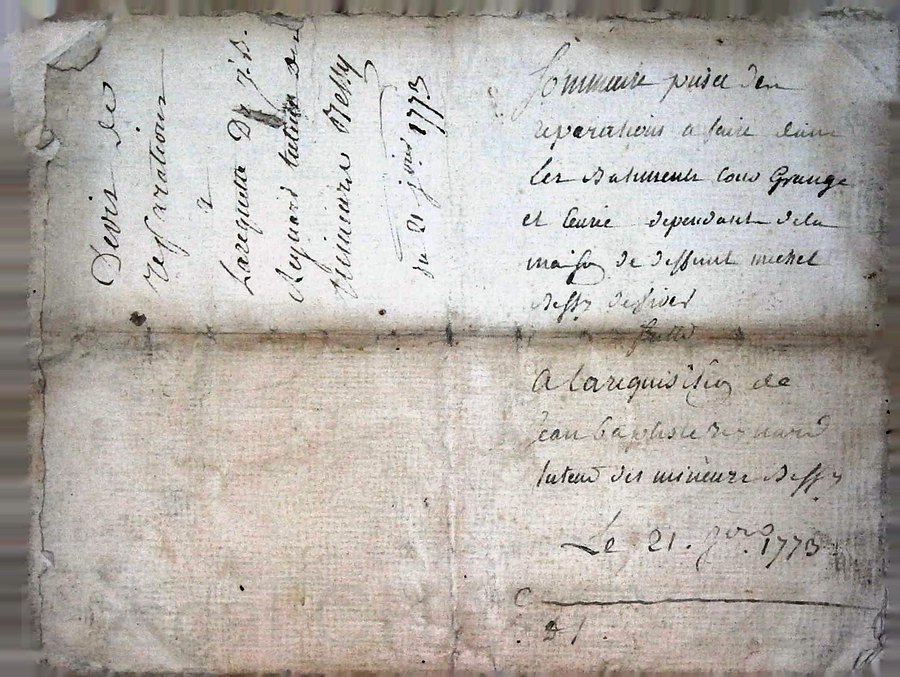 Devis de
reparation
a
Larequeste De J. B.
Reynard tuteur des
Mineurs Bessy
du 21 jvier 1773
Sommaire prisee des
reparations a faire dans
Les Batiments cour Grange
et Ecurie dependant dela
maison de deffunt michel
Bessy
faitte
A larequisition de
jean baptiste reynard
tuteur des mineurs Bessy
Le 21. jvier 1773